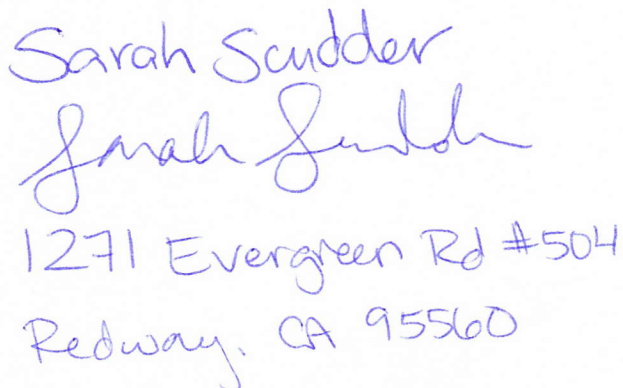 Sarah Scudder
Sarah Scudder
1271 Evergreen Rd #504
Redway, CA 95560